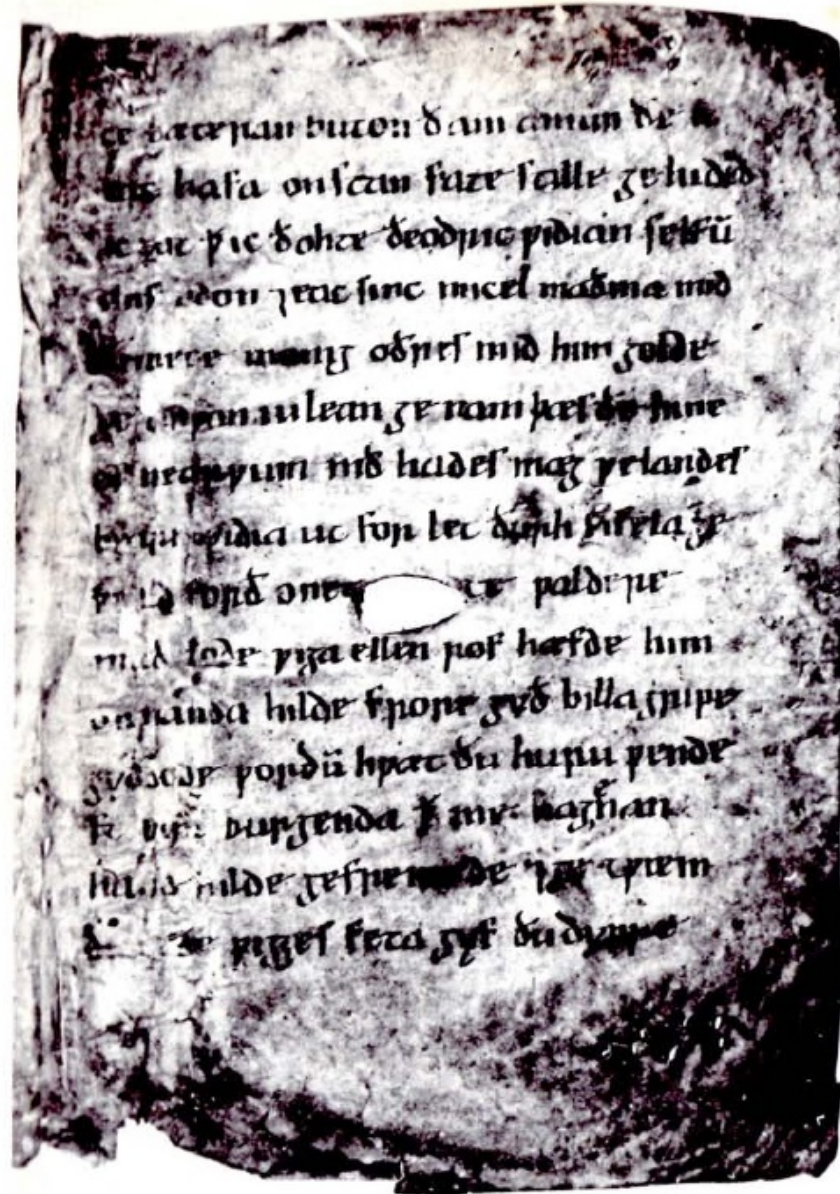 ce bæteran buton ðam anum ðe
hafa on stan fate stille ge hided
ic ƿat þ ic ðohte ðeodric ƿidian selfū
⁊ eac sinc micel maðma mid
mece monig oðres mid him golde
iulean ge nam þæs ðe hine
of nearƿum nið hades mæg ƿelandes
bearn ƿidia ut for let ðurh fifela ge
forð onet ƿaldere
ƿiga ellen rof hæfde him
on handa hilde frore guð billa gripe
gyddode ƿordū hƿæt ðu huru ƿende
burgenda þ me hagenan
hand hilde gefremede ⁊ ge tƿæm
ƿigges feta gyf ðu dyrre